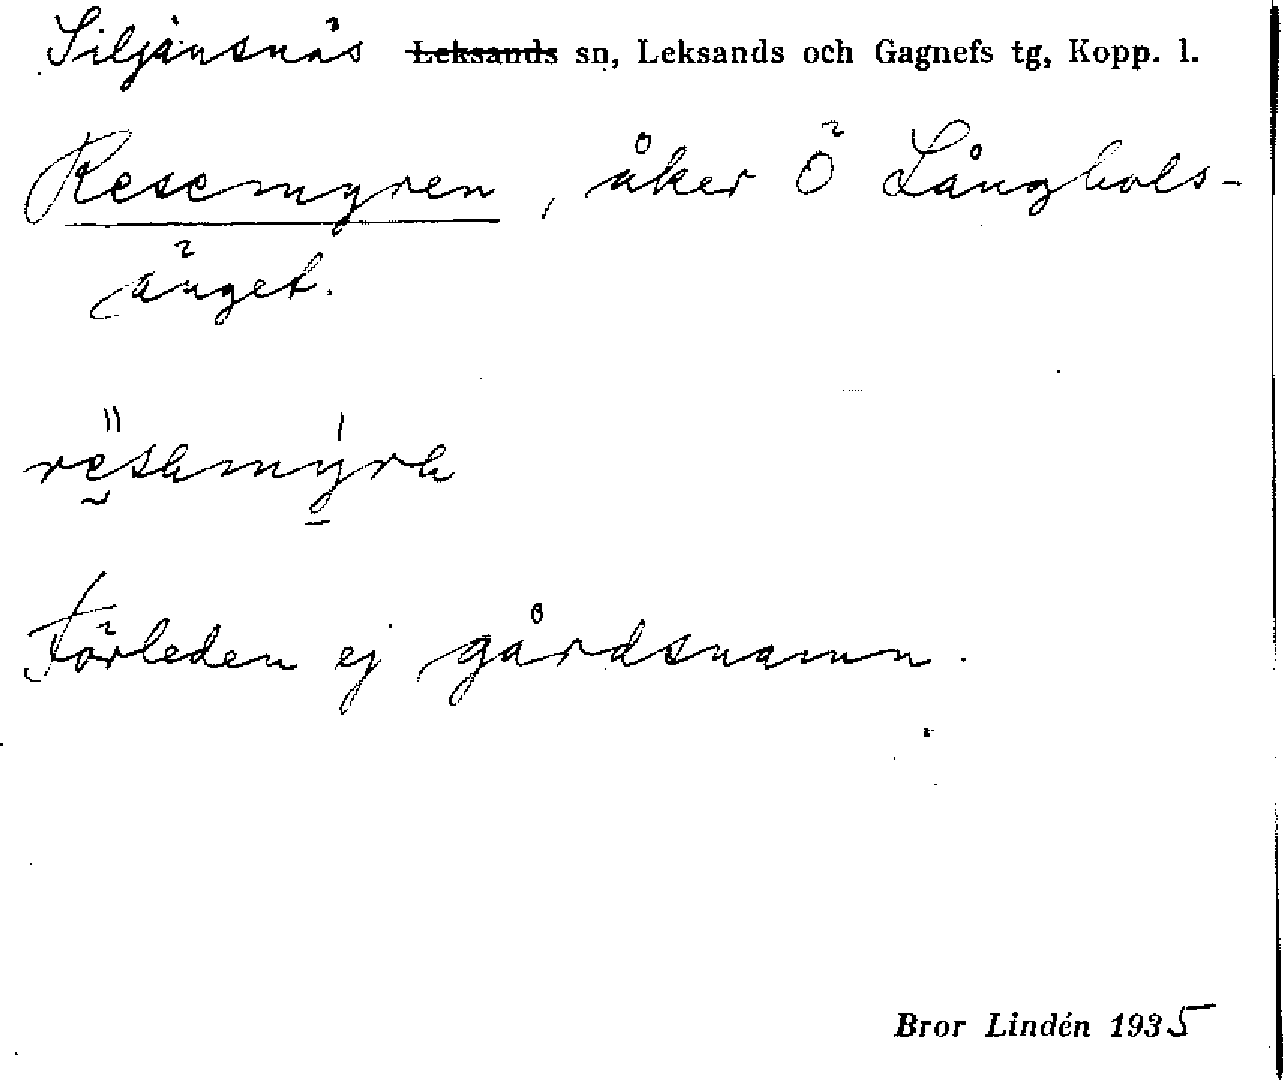 Siljansnäs ~~Leksands~~ sn, Leksands och Gagnefs tg, Kopp. l.
Resemyren, åker Ö Långhols-
änget.
Förleden ej gårdsnamn.
Bror Lindén 1935